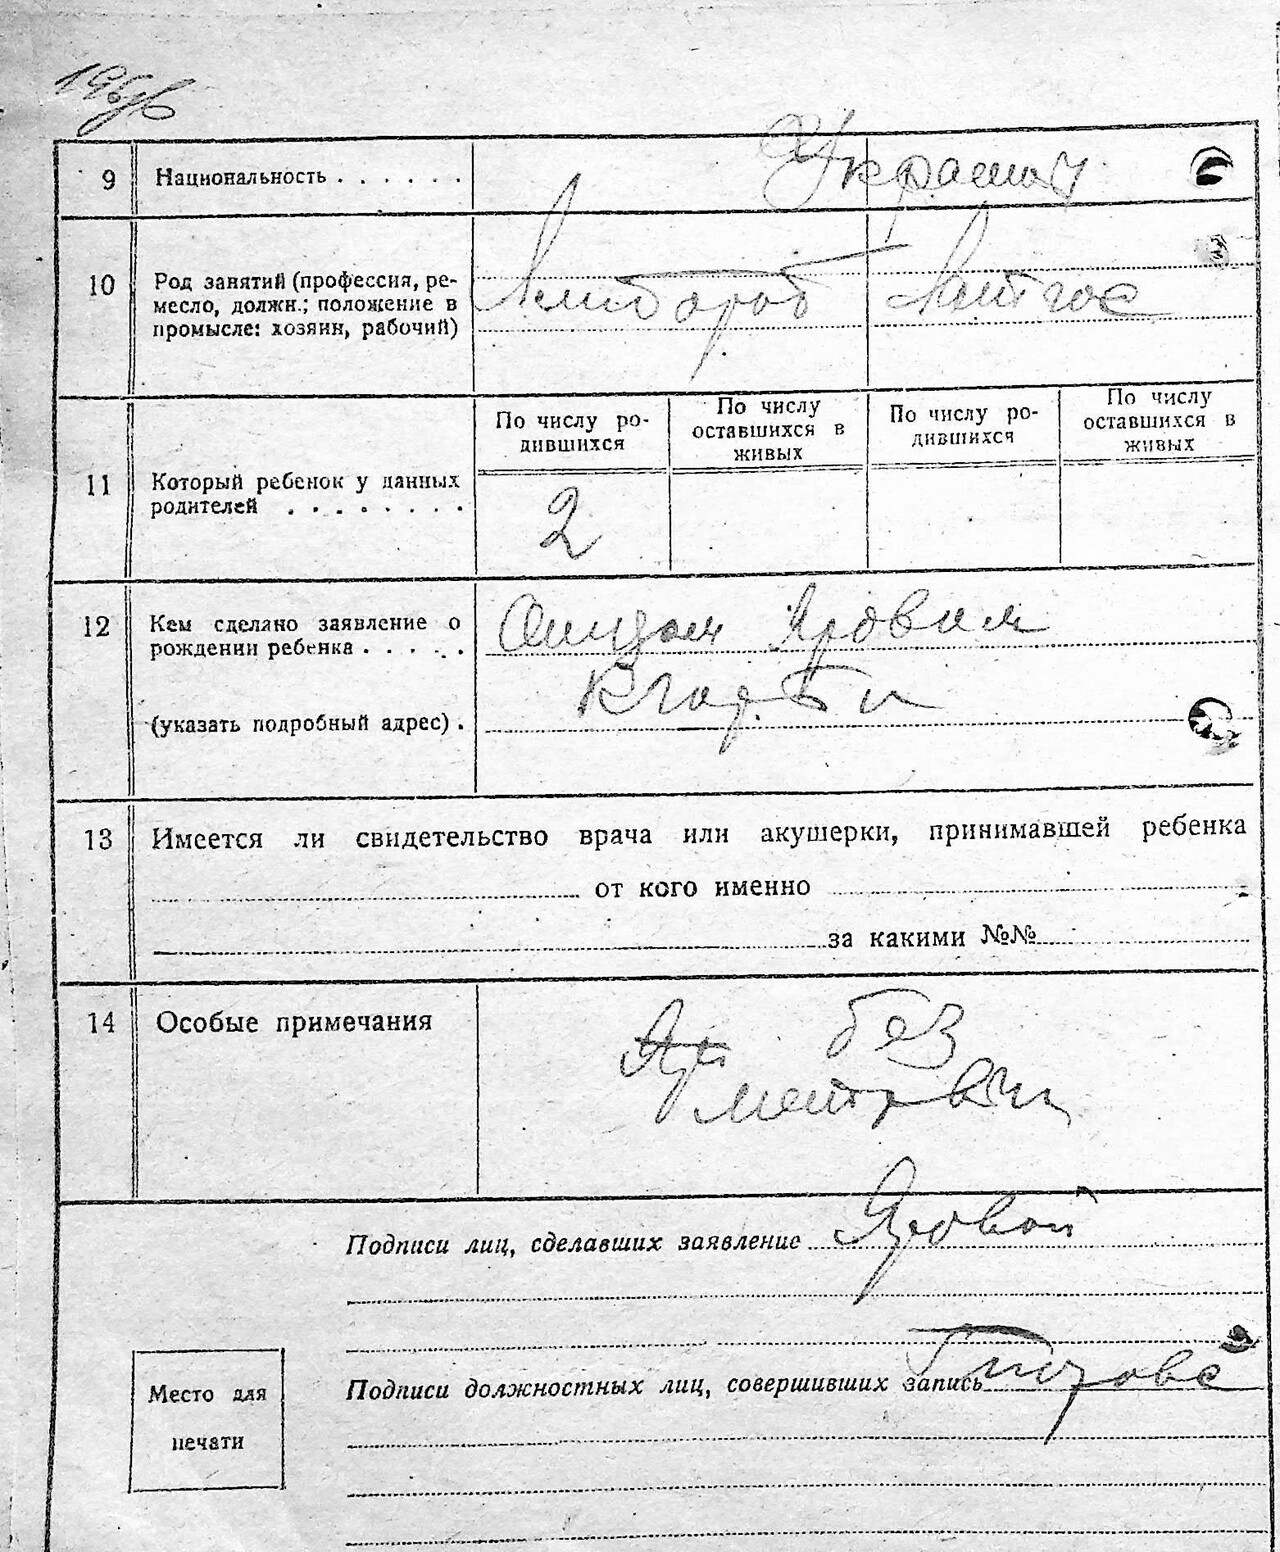 9 Национальность . . . . . .
10 Род занятий (профессия, ре-
месло, должн.; положение в
промысле: хозяин, рабочий)
По числу ро-
дившихся
По числу
оставшихся в
живых
По числу ро-
дившихся
По числу
оставшихся в
живых
11 Который ребенок у данных
родителей . . . . . . . .
2
12 Кем сделано заявление о
рождении ребенка . . . . .
Отцом Яровым
(указать подробный адрес) .
13 Имеется ли свидетельство врача или акушерки, принимавшей ребенка
от кого именно
за какими №№
14 Особые примечания
без
метрики
Подписи лиц, сделавших заявление Яровой
Подписи должностных лиц, совершивших запись
Место для
печати